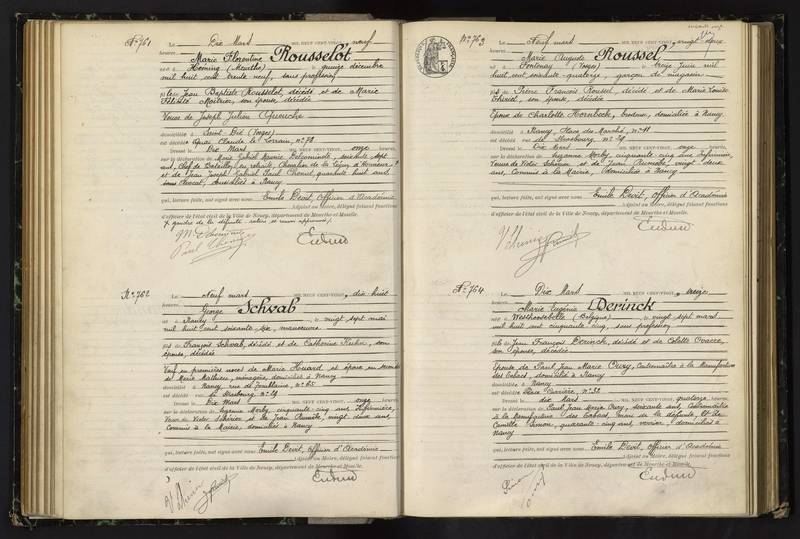 N° 761
Le Dix Mars MIL NEUF CENT-VINGT, neuf
heures,
Marie Florentine Rousselot
née à (Meurthe) le quinze décembre
mil huit cent trente neuf, sans profession
fille de Jean Baptiste Rousselot, décédé et de Marie
son épouse, décédée
Veuve de Joseph Julien Queuche
domicilié à Saint Dié (Vosges)
est décédée Quai Claude le Lorrain, n° 79
Dressé le Dix Mars MIL NEUF CENT-VINGT, onze heures,
sur la déclaration de Marie Gabriel Maurice soixante sept
ans, Chef de Bataillon en retraite, Chevalier de la Légion d'Honneur
et de Jean Joseph Gabriel Paul quarante huit ans
domiciliés à Nancy
qui, lecture faite, ont signé avec nous Emile Devit, Officier d'Académie
Adjoint au Maire, délégué faisant fonctions
d'officier de l'état civil de la Ville de Nancy, département de Meurthe-et-Moselle.
N° 762
Le Neuf mars MIL NEUF CENT-VINGT, dix huit
heures,
George Schvab
né à Nancy le vingt sept mai
mil huit cent soixante six, manœuvre
fils de François Schvab, décédé et de Catherine Kuhn, son
épouse, décédée
Veuf en premières noces de Marie Huard et époux en secondes
de Marie Mathieu, ménagère, domiciliés à Nancy
domicilié à Nancy, rue de n° 65
est décédé rue de Strasbourg n° 29
Dressé le Dix Mars MIL NEUF CENT-VINGT, onze heures,
sur la déclaration de Suzanne Morby, cinquante cinq ans, Infirmière,
Veuve de Victor et de Jean vingt deux ans,
Commis à la Mairie, domiciliés à Nancy
qui, lecture faite, ont signé avec nous Emile Devit, Officier d'Académie
Adjoint au Maire, délégué faisant fonctions
d'officier de l'état civil de la Ville de Nancy, département de Meurthe-et-Moselle.
N° 763
Le Neuf mars MIL NEUF CENT-VINGT, vingt deux
heures,
Marie Auguste Roussel
né à Fontenay (Vosges) le treize Juin mil
huit cent soixante quatorze, garçon de magasin
fils de Pierre François Roussel, décédé et de Marie Louise
Thiriet, son épouse, décédée
Epoux de Charlotte Hornbeck, brodeuse, domiciliée à Nancy
domicilié à Nancy, Place du Marché, n° 11
est décédé rue de Strasbourg, n° 29
Dressé le Dix Mars MIL NEUF CENT-VINGT, onze heures,
sur la déclaration de Suzanne Morby, cinquante cinq ans Infirmière,
Veuve de Victor et de Jean vingt deux
ans, Commis à la Mairie, domiciliés à Nancy
qui, lecture faite, ont signé avec nous Emile Devit, Officier d'Académie
Adjoint au Maire, délégué faisant fonctions
d'officier de l'état civil de la Ville de Nancy, département de Meurthe-et-Moselle.
N° 764
Le Dix Mars MIL NEUF CENT-VINGT, treize
heures,
Marie Eugénie Derinck
née à (Belgique) le vingt mars
mil huit cent cinquante cinq, sans profession
fille de Jean François Derinck, décédé et de Colette
son épouse, décédée
Epouse de Paul Jean Marie Contremaître à la Manufacture
des tabacs, domicilié à Nancy
domiciliée à Nancy
est décédée Place Carrière, n° 32
Dressé le dix Mars MIL NEUF CENT-VINGT, quatorze heures,
sur la déclaration de Paul Jean Marie soixante ans, Contremaître
à la Manufacture des tabacs, mari de la défunte, et de
Camille Simon, quarante cinq ans, domiciliés à
Nancy
qui, lecture faite, ont signé avec nous Emile Devit, Officier d'Académie
Adjoint au Maire, délégué faisant fonctions
d'officier de l'état civil de la Ville de Nancy, département de Meurthe-et-Moselle.